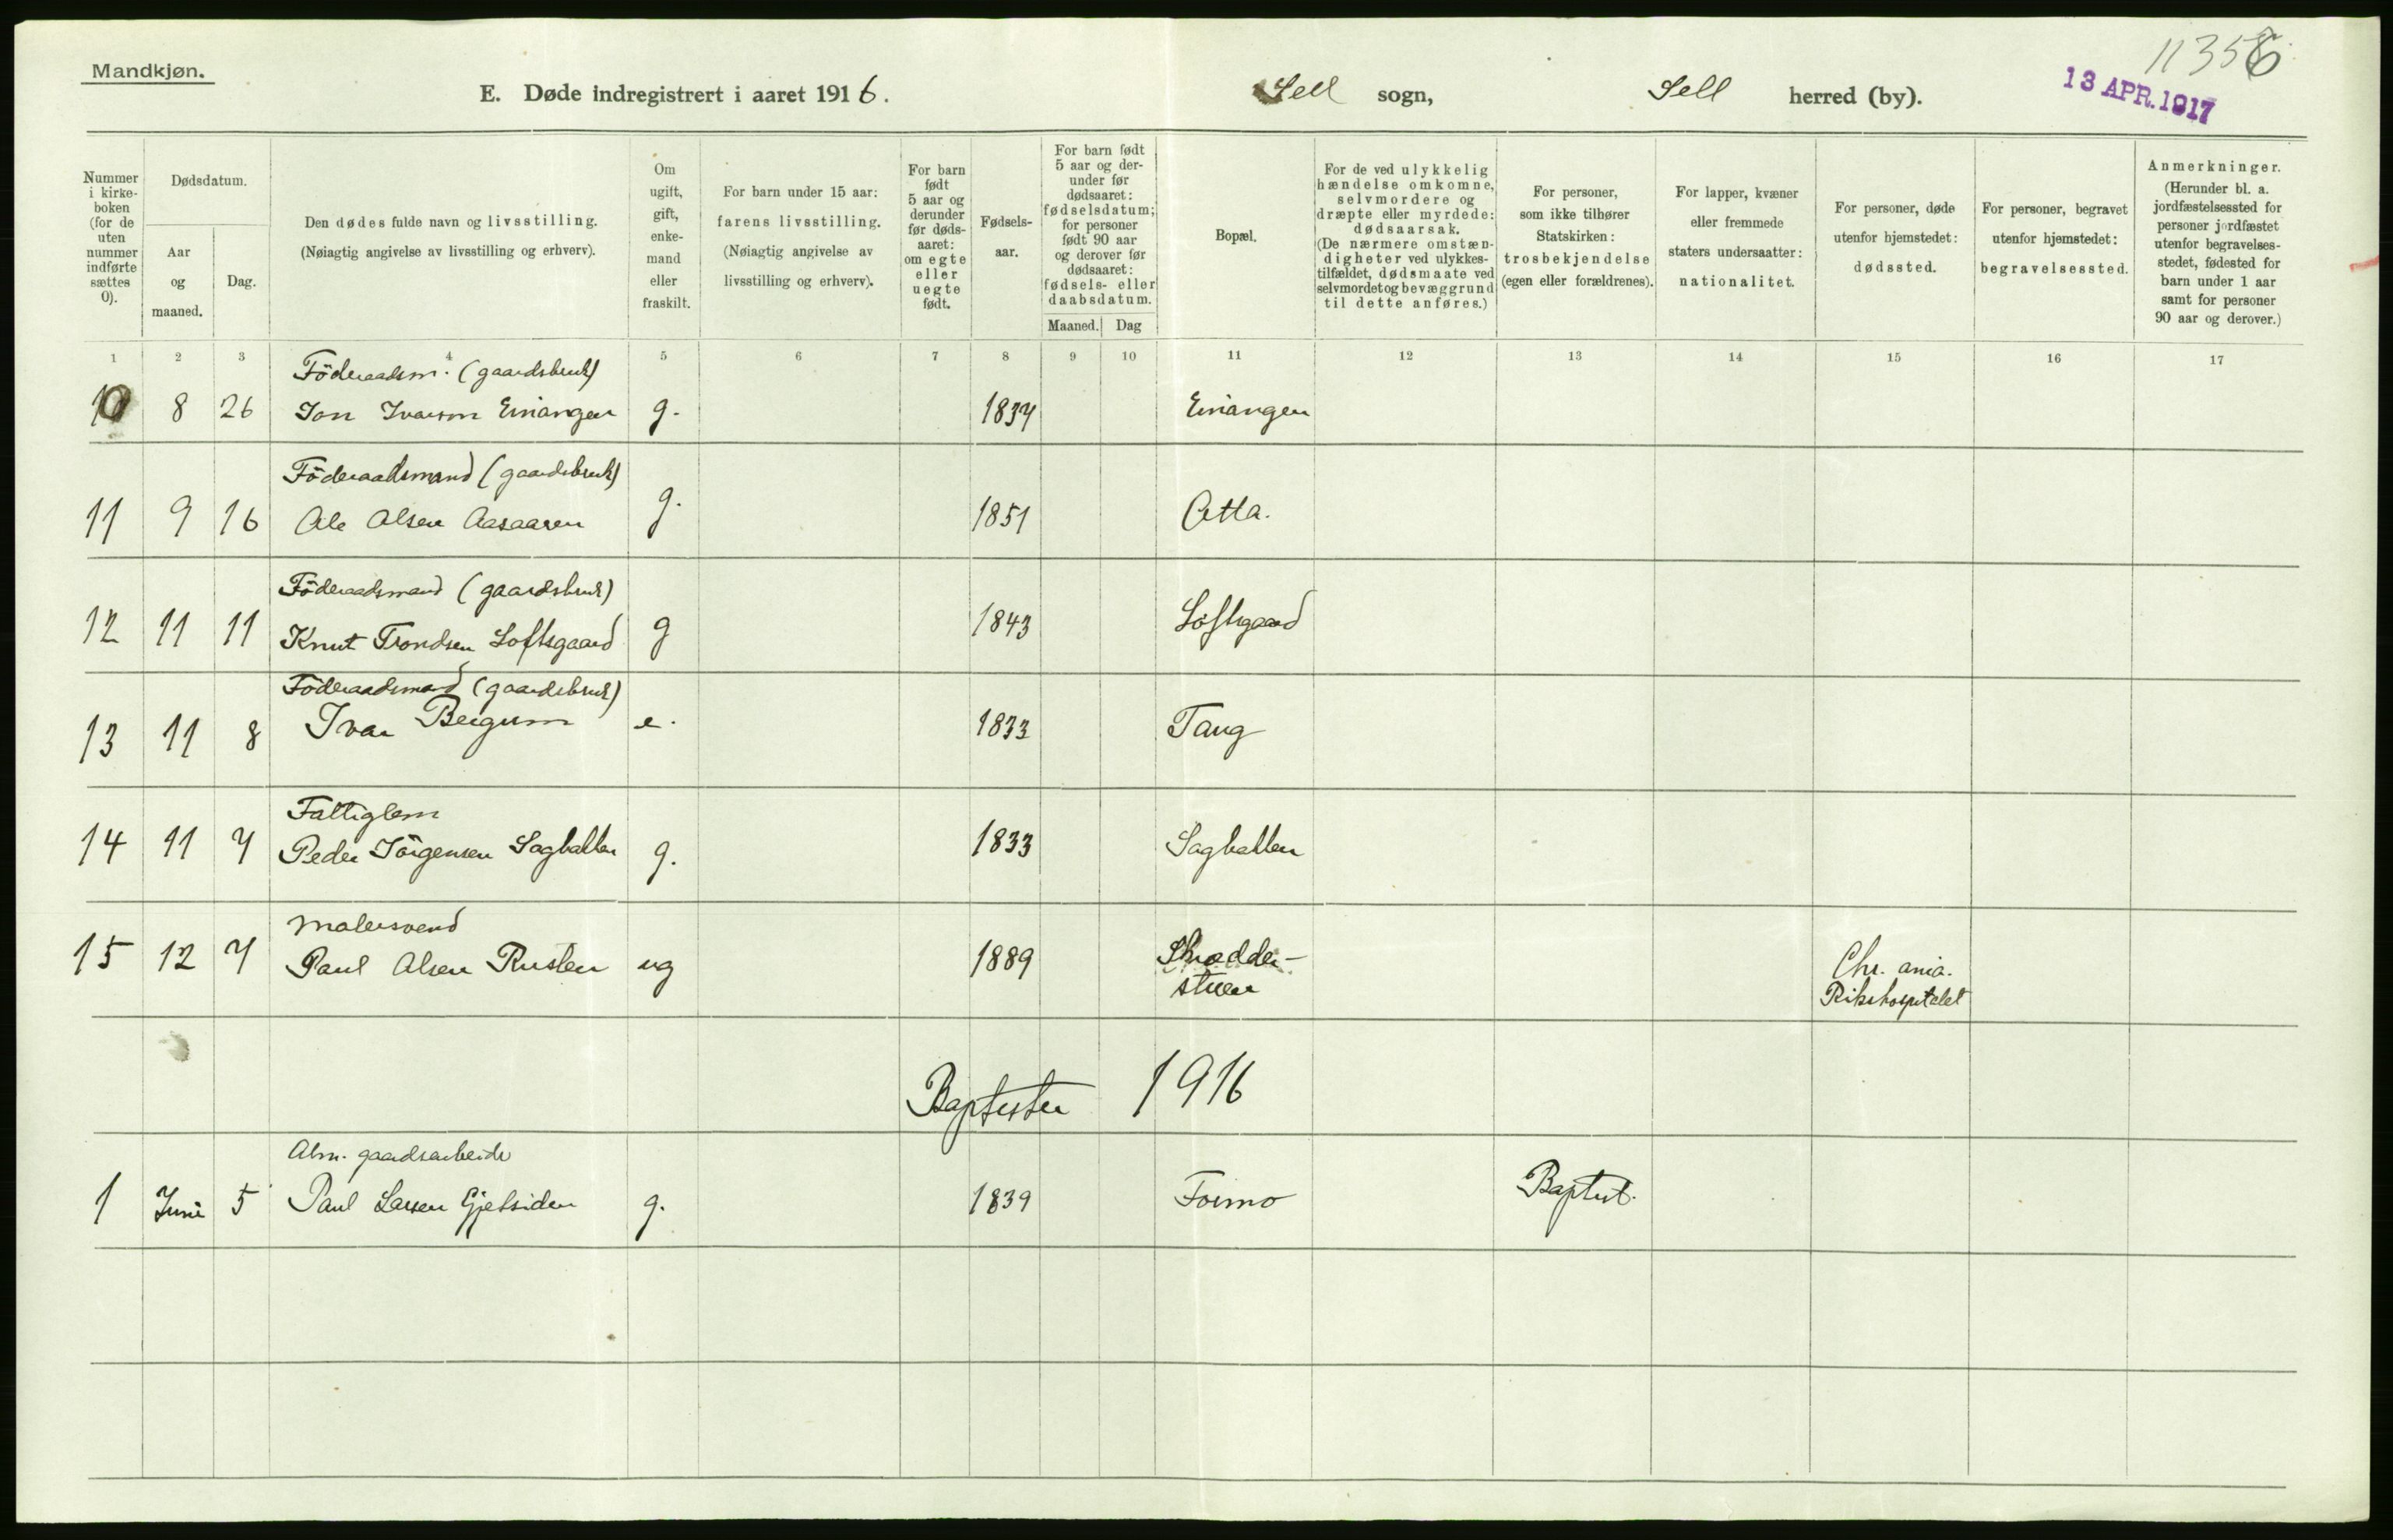 Mandkjøn.
1135
6
13 APR. 1917
E. Døde indregistrert i aaret 1916.
Sell sogn,
Sell herred (by).
Nummer i kirke-boken (for de uten nummer indførte sættes 0).
Dødsdatum.
Aar og maaned.
Dag.
Den dødes fulde navn og livsstilling.
(Nøiagtig angivelse av livsstilling og erhverv).
Om ugift, gift, enke-mand eller fraskilt.
For barn under 15 aar: farens livsstilling.
(Nøiagtig angivelse av livsstilling og erhverv).
For barn født 5 aar og derunder før døds-aaret: om egte eller uegte født.
Fødsels-aar.
For barn født 5 aar og der-under før dødsaaret: fødselsdatum; for personer født 90 aar og derover før dødsaaret: fødsels- eller daabsdatum.
Maaned.
Dag
Bopæl.
For de ved ulykkelig hændelse omkomne, selvmordere og dræpte eller myrdede: dødsaarsak.
(De nærmere omstæn-digheter ved ulykkes-tilfældet, dødsmaate ved selvmordet og bevæggrund til dette anføres.)
For personer, som ikke tilhører Statskirken: trosbekjendelse (egen eller forældrenes).
For lapper, kvæner eller fremmede staters undersaatter: nationalitet.
For personer, døde utenfor hjemstedet: dødssted.
For personer, begravet utenfor hjemstedet: begravelsessted.
Anmerkninger.
(Herunder bl. a. jordfæstelsessted for personer jordfæstet utenfor begravelses-stedet, fødested for barn under 1 aar samt for personer 90 aar og derover.)
1 2 3 4 5 6 7 8 9 10 11 12 13 14 15 16 17
Föderaadsm. (gaardsbruk)
10 8 26 Jon Ivarson Eriangen g. 1834 Eriangen
Föderaadsmand (gaardsbruk)
11 9 16 Ole Olsen Aasaaren g. 1851 Otta.
Föderaadsmand (gaardsbruk)
12 11 11 Knut Trondsen Loftsgaard g 1843 Loftsgaard
Föderaadsmand (gaardsbruk)
13 11 8 Ivar Bergum e. 1833 Taug
Fattiglem
14 11 7 Peder Jörgensen Sagbakken g. 1833 Sagbakken
Malersvend
15 12 7 Paul Olsen Rusten ug 1889 Skrædder-
stuen
Chr. ania.
Rikshospitalet
Baptister 1916
Alm. gaardsarbeide
1 Juni 5 Paul Larsen Gjetsiden g. 1839 Formo Baptist.